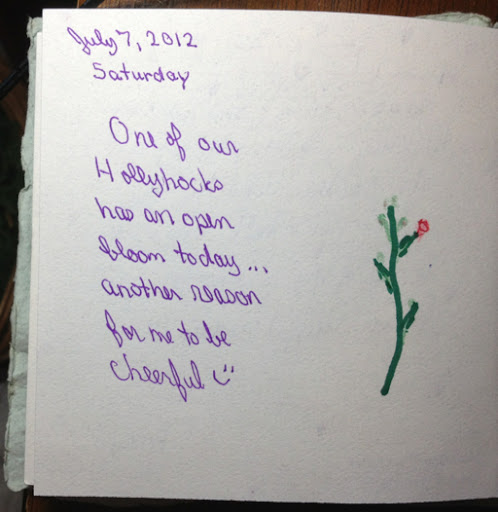 July 7, 2012
Saturday
One of our
Hollyhocks
has an open
bloom today...
another reason
for me to be
cheerful